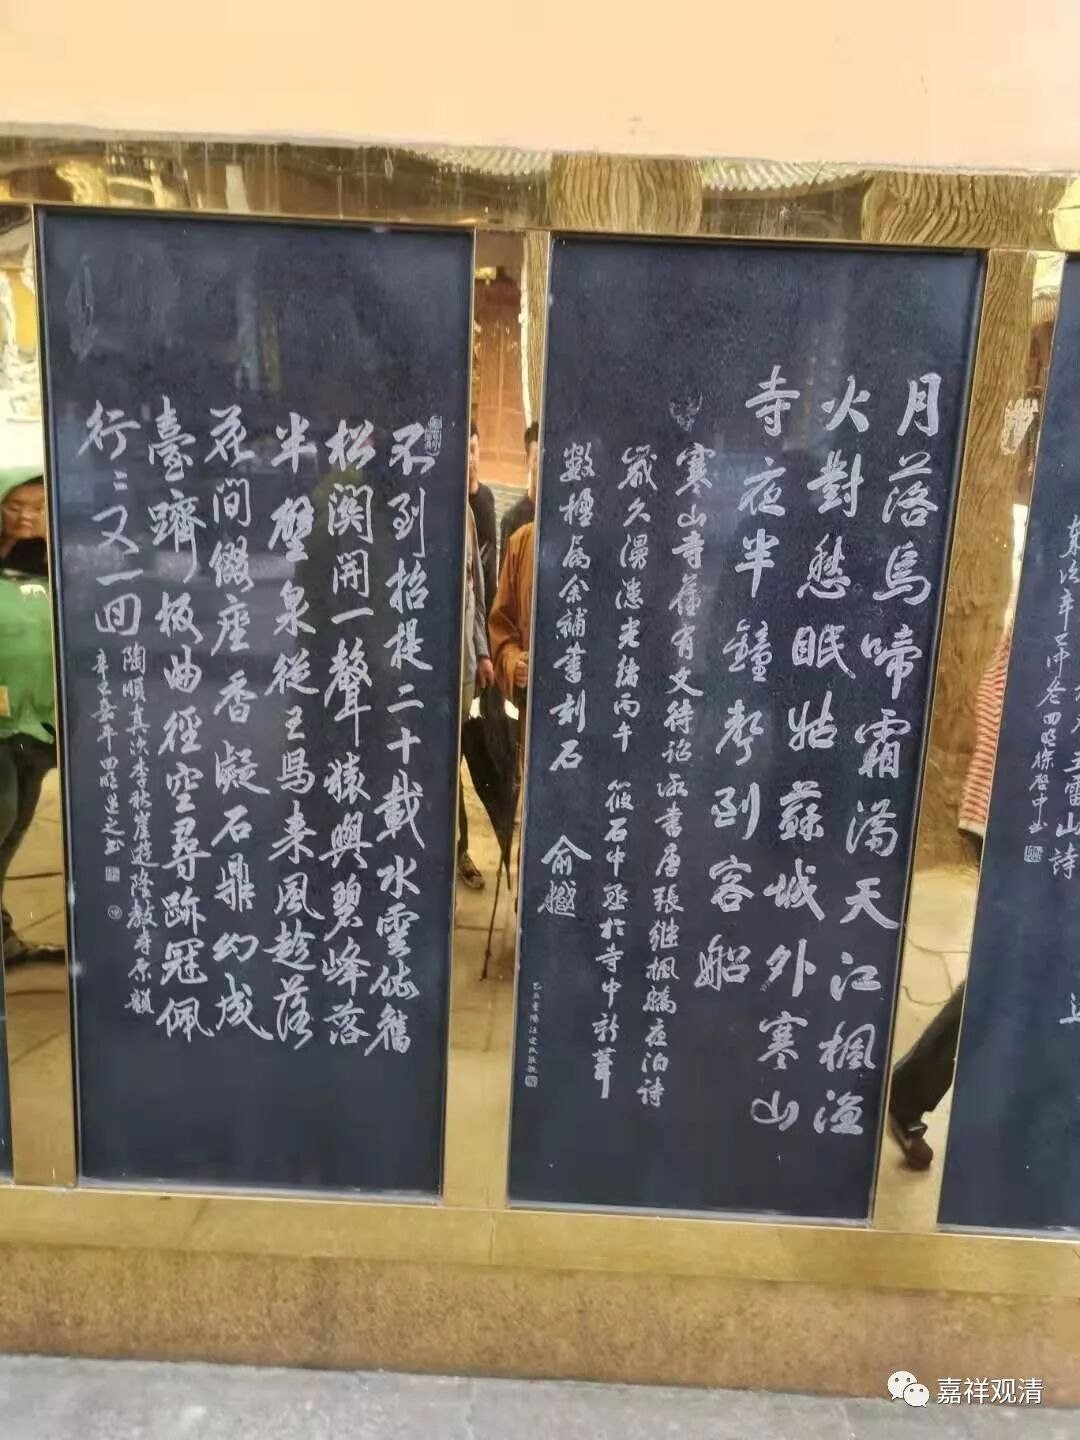 五雷山詩
辛巳仲冬四明徐啓中书
月落烏啼霜滿天江楓漁
火對愁眠姑蘇城外寒山
寺夜半鐘聲到客船
寒山寺舊有文待詔所書唐張継楓橋夜泊詩
歲久漫漶光緒丙午筱石中丞於寺中新葺
數楹屬余補書刻石 俞樾
不到招提二十載水雲依舊
松関開一聲猿與碧峰落
半壁泉從玉馬来風趁落
花間綴座香凝石鼎幻成
臺躋板曲徑空尋跡冠佩
行〻又一回
陶順真次李秋崖遊隆教寺原韻
辛巳嘉平四明
嘉祥观清